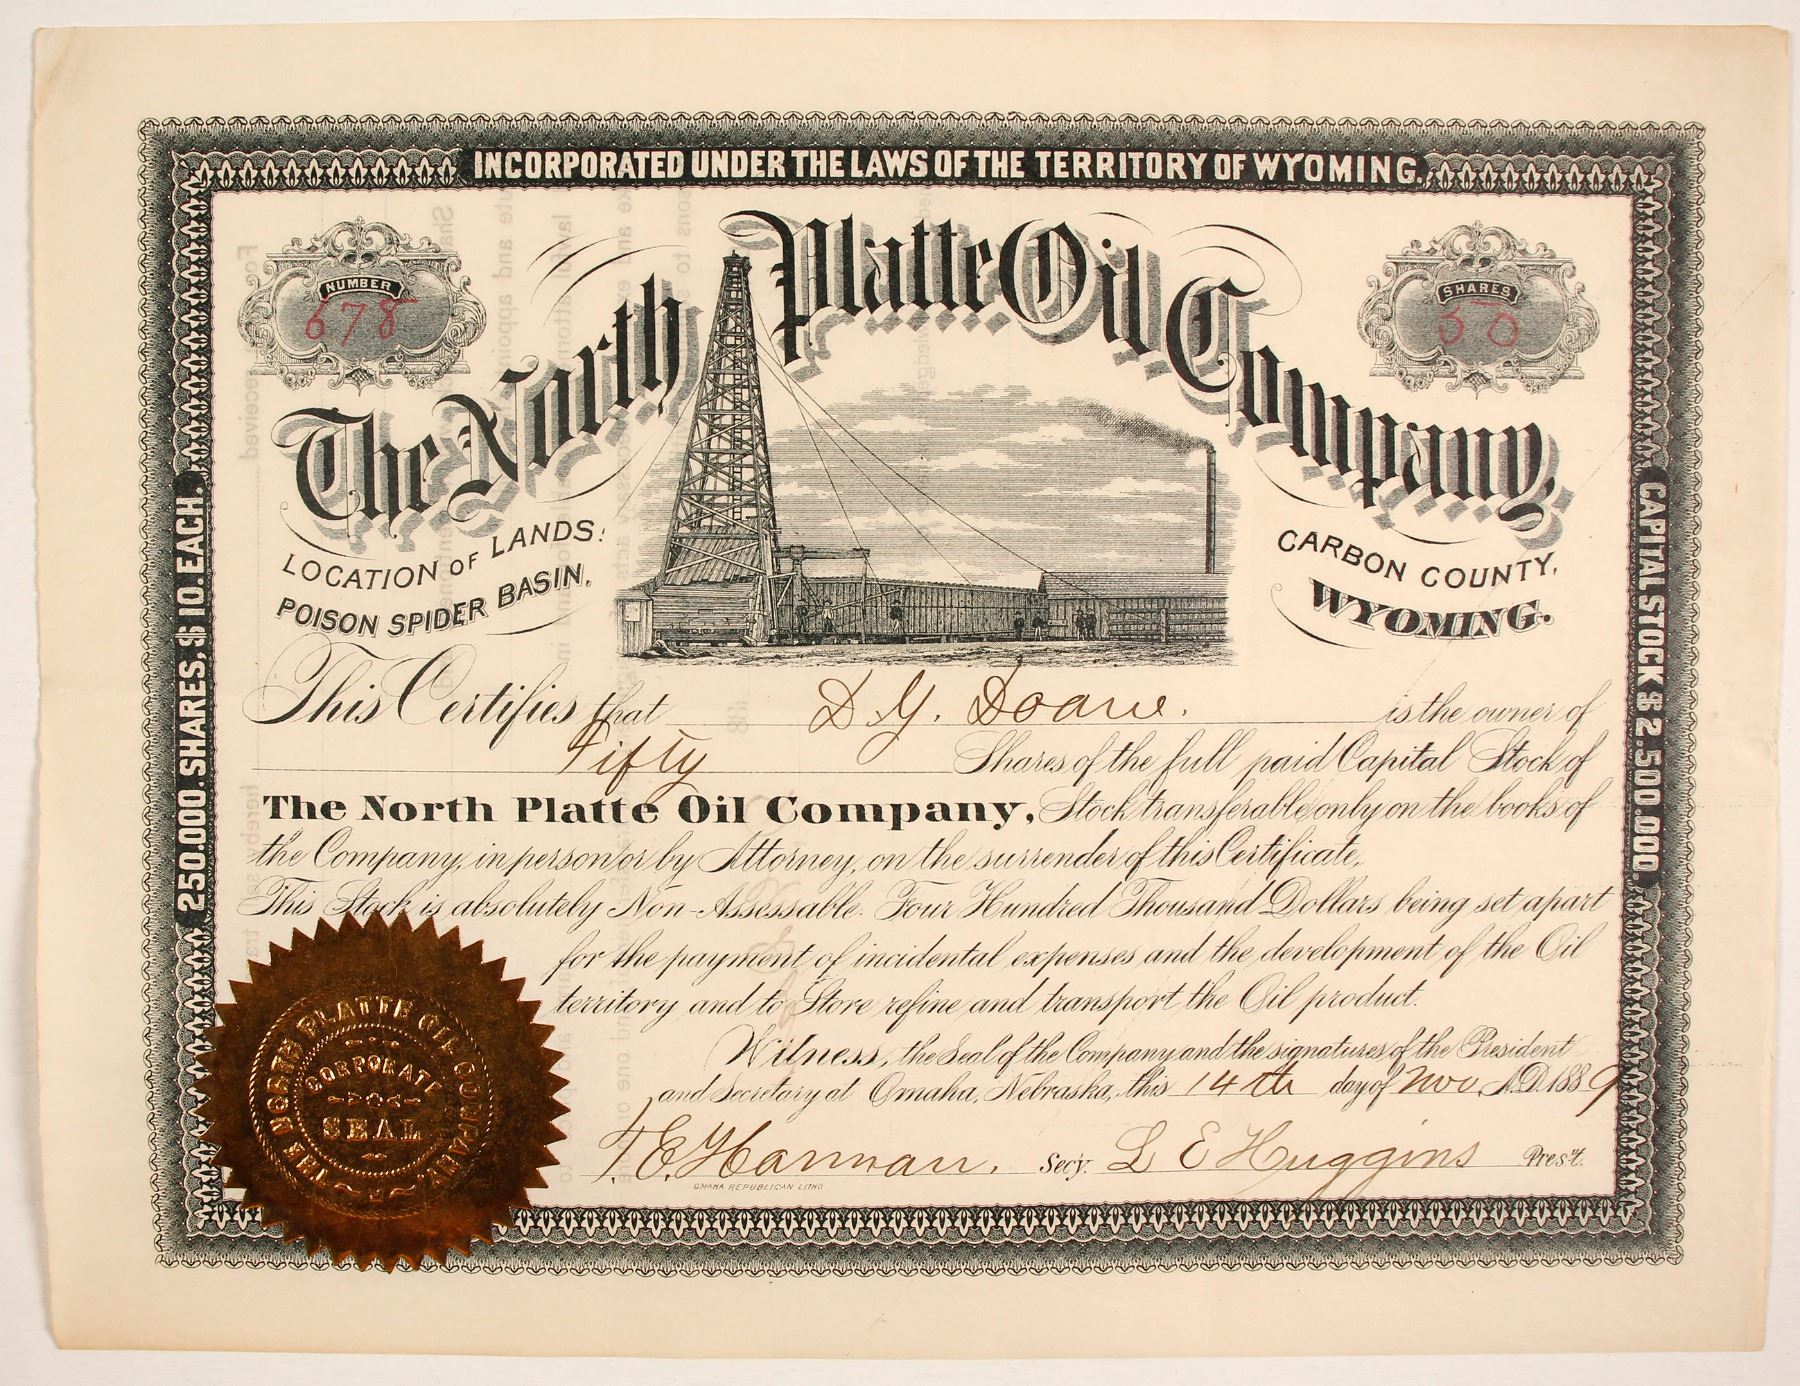 INCORPORATED UNDER THE LAWS OF THE TERRITORY OF WYOMING.
NUMBER
678
SHARES
50
The North Platte Oil Company,
LOCATION OF LANDS:
POISON SPIDER BASIN,
CARBON COUNTY,
WYOMING.
250.000. SHARES, $10. EACH.
CAPITAL STOCK $2.500.000.
This Certifies that D. Y. Doane. is the owner of
Fifty Shares of the full paid Capital Stock of
The North Platte Oil Company, Stock transferable only on the books of
the Company, in person or by Attorney, on the surrender of this Certificate.
This Stock is absolutely Non-Assessable. Four Hundred Thousand Dollars being set apart
for the payment of incidental expenses and the development of the Oil
territory and to Store refine and transport the Oil product.
Witness, the Seal of the Company and the signatures of the President
and Secretary at Omaha, Nebraska, this 14th day of Nov. A.D. 1889
T. E. Harman. Secy. L E Huggins Pres't.
OMAHA REPUBLICAN LITHO
THE NORTH PLATTE OIL COMPANY
CORPORATE
SEAL